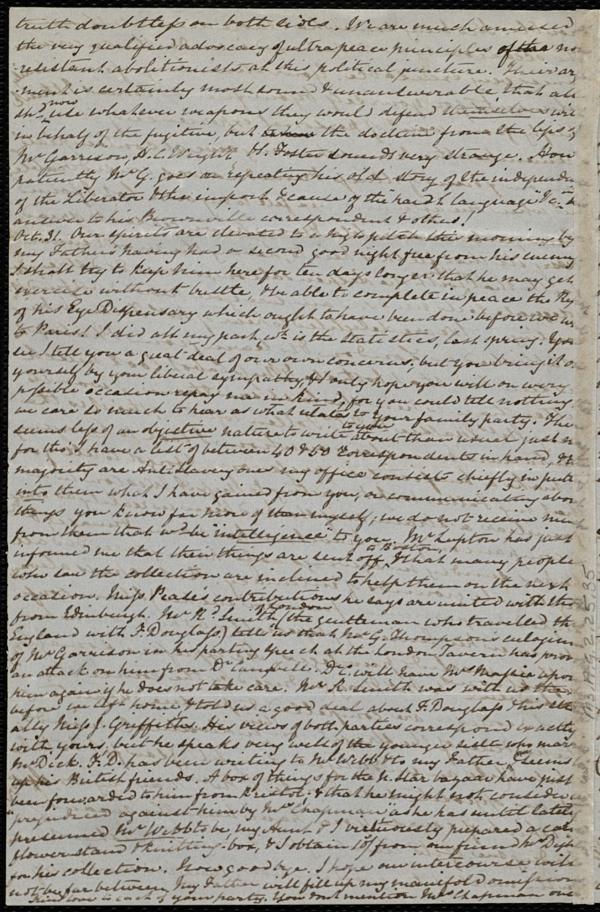 truth doubtless on both sides. We are much amused
the very qualified advocacy of ultra peace principles of the no
resistant abolitionists at this political juncture. Their ar
ment is certainly most sound & unanswerable that all
shd now use whatever weapons they would defend themselves wi
in behalf of the fugitive, but the doctrine from the lips of
Mr Garrison, H. C. Wright, Foster sounds very strange. How
patiently Mr G. goes on repeating his old story of the independence
of the Liberator & the import & cause of the "harsh language" &c. in
answer to his Brownville correspondent & others!
Oct. 31. Our spirits are elevated to a high pitch this morning by
my Father's having had a second good night free from his enemy
I shall try to keep him here for ten days longer that he may get
exercise without bustle, & be able to complete in peace the Ry
of his Eye Dispensary which ought to have been done before we w
to Paris! I did all my part wh is the statistics, last spring. You
see I tell you a great deal of our own concerns, but you bring it o
yourself by your liberal sympathy, & I only hope you will on every
possible occasion repay me in kind, for you could tell nothing
we care so much to hear as what relates to your family party. There
seems less of an objective nature to write to you about than usual just n
for tho' I have a list of between 40 & 50 correspondents in hand, & th
majority are Anti-slavery ones my office consists chiefly in put
into them what I have gained from you, or communicating abou
things you know far more of than myself; we do not receive much
from them that wd be "intelligence" to you. Mr Lupton has just
informed me that their things are sent off to Boston, & that many people
who saw the collection are inclined to help them on the next
occasion. Miss Pease's contributions he says are united with tho
from Edinburgh. Mr R. Smith of London (the gentleman who travelled th
England with F. Douglass) tells us that Mr G. Thompson's eulogium
of Mr Garrison in his parting speech at the London Tavern has prov
an attack on him from Dr Campbell. Dr C. will have Mrs Massie upon
him again if he does not take care. Mr R. Smith was with us the
before we left home & told us a good deal about F. Douglass &
ally Miss J. Griffiths. His views of both parties correspond exactly
with yours, but he speaks very well of the younger sister who marr
Mr Dick. F. D. has been writing to Mr Webb & to my Father, & seems
up his British friends. A box of things for the N. Star bazaar have just
been forwarded to him from Bristol: & that he might not consider
"prejudiced against him by Mrs Chapman" as he has until lately
presumed Mr Webb to be, my Aunt & I virtuously prepared a cat
flower stand & knitting-box, & I obtain from our friend
for his collection. Now good bye. I hope our intercourse will
not be far between. My Father will fill up my manifold omissions
Kind love to each of your party. You don't mention Mrs Chapman